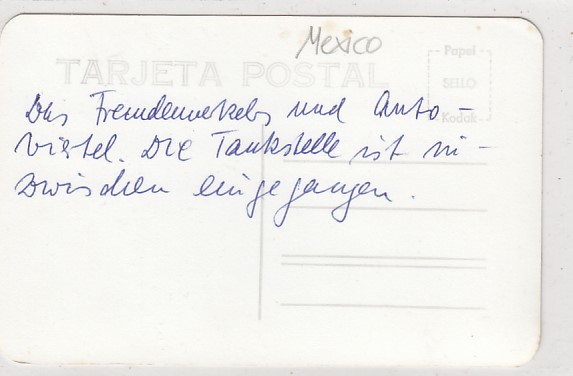 Mexico
TARJETA POSTAL
Papel
SELLO
Kodak
Das Fremdenverkehrs und Auto-
viertel. Die Tankstelle ist in-
zwischen eingegangen.